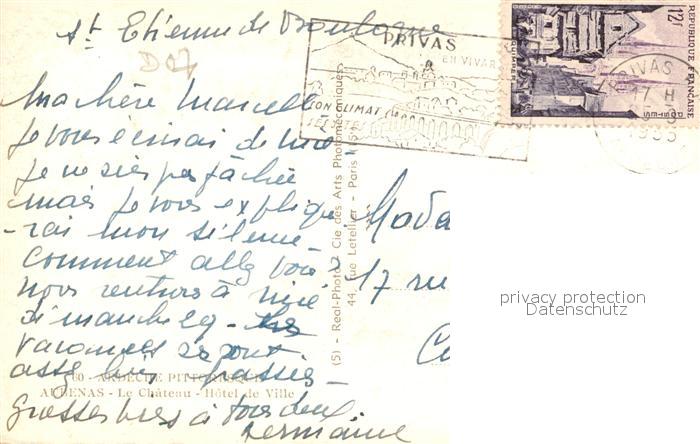 St Etienne de Boulogne
D07
Ma chère Marcelle
je vous écrirai de Nice
je ne sies pas fachée
mais je vous expliqe
-rai mon silence -
Comment allez vous ?
nous rentrons à Nice
dimanche 29 - les
vacances se sont
assez bien passées -
Grosses bises à tous deux
Germaine
60 - ARDÈCHE PITTORESQUE
AUBENAS - Le Château - Hôtel de Ville
(S) - Real-Photo - Cie des Arts Photomécaniques
44, rue Letellier - Paris 15e
PRIVAS
EN VIVAR
SON CLIMAT
SES SITES
RÉPUBLIQUE FRANÇAISE
12f
QUIMPER
PRIVAS
17 H
1955
Mada
17 ru
privacy protection
Datenschutz